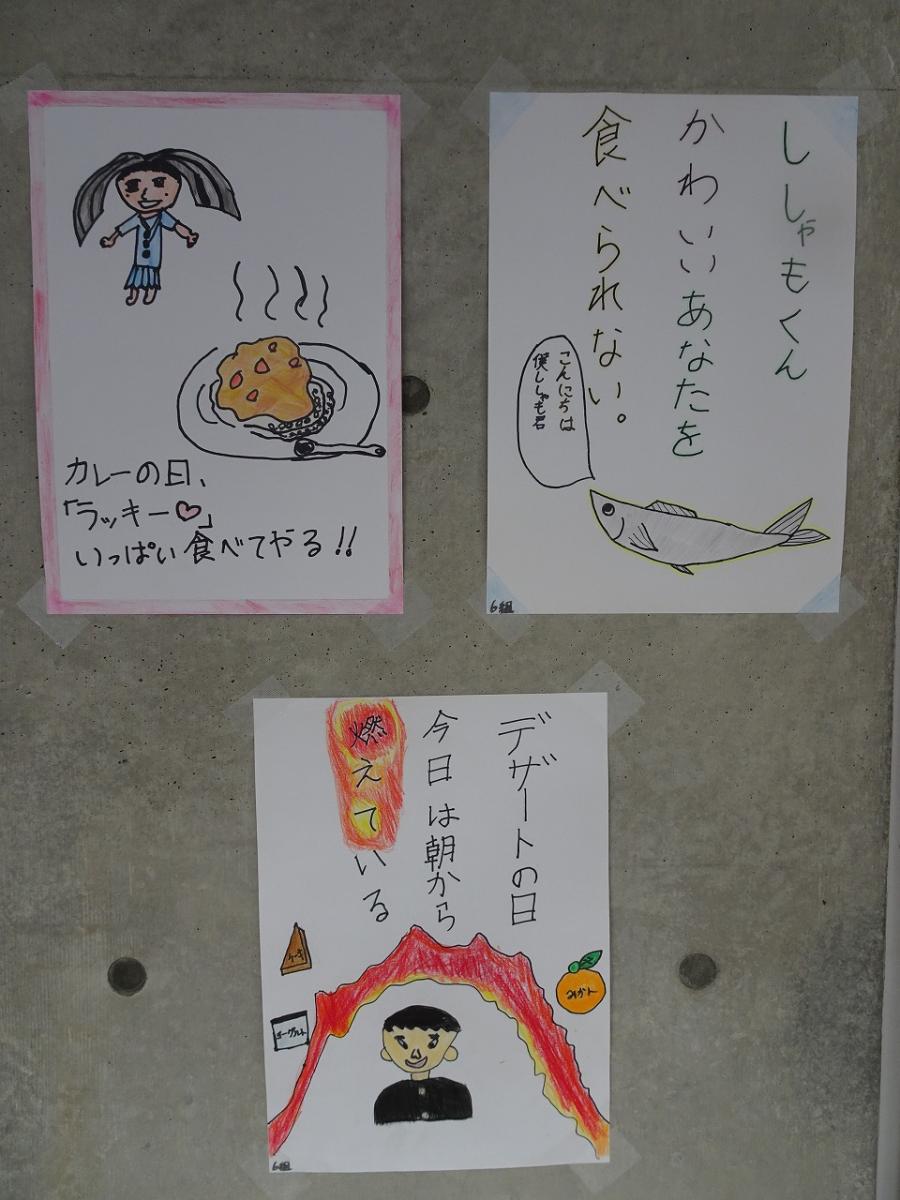 カレーの日、
「ラッキー♡」
いっぱい食べてやる!!
ししゃもくん
かわいいあなたを
食べられない。
こんにちは
僕ししゃも君
6組
デザートの日
今日は朝から
燃えている
ケーキ
ヨーグルト
みかん
6組